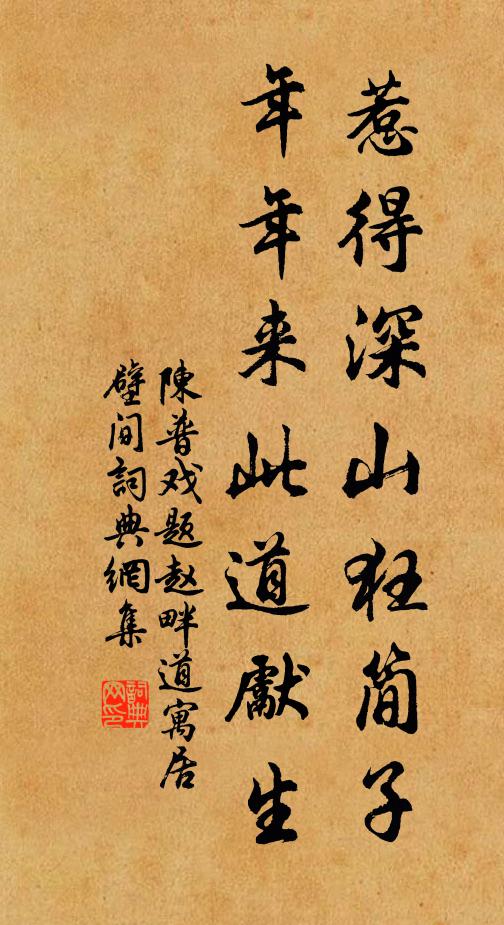 惹得深山狂简子
年年来此道献生
陳普戏题赵畔道寓居
壁间詞典網集
詞典网印